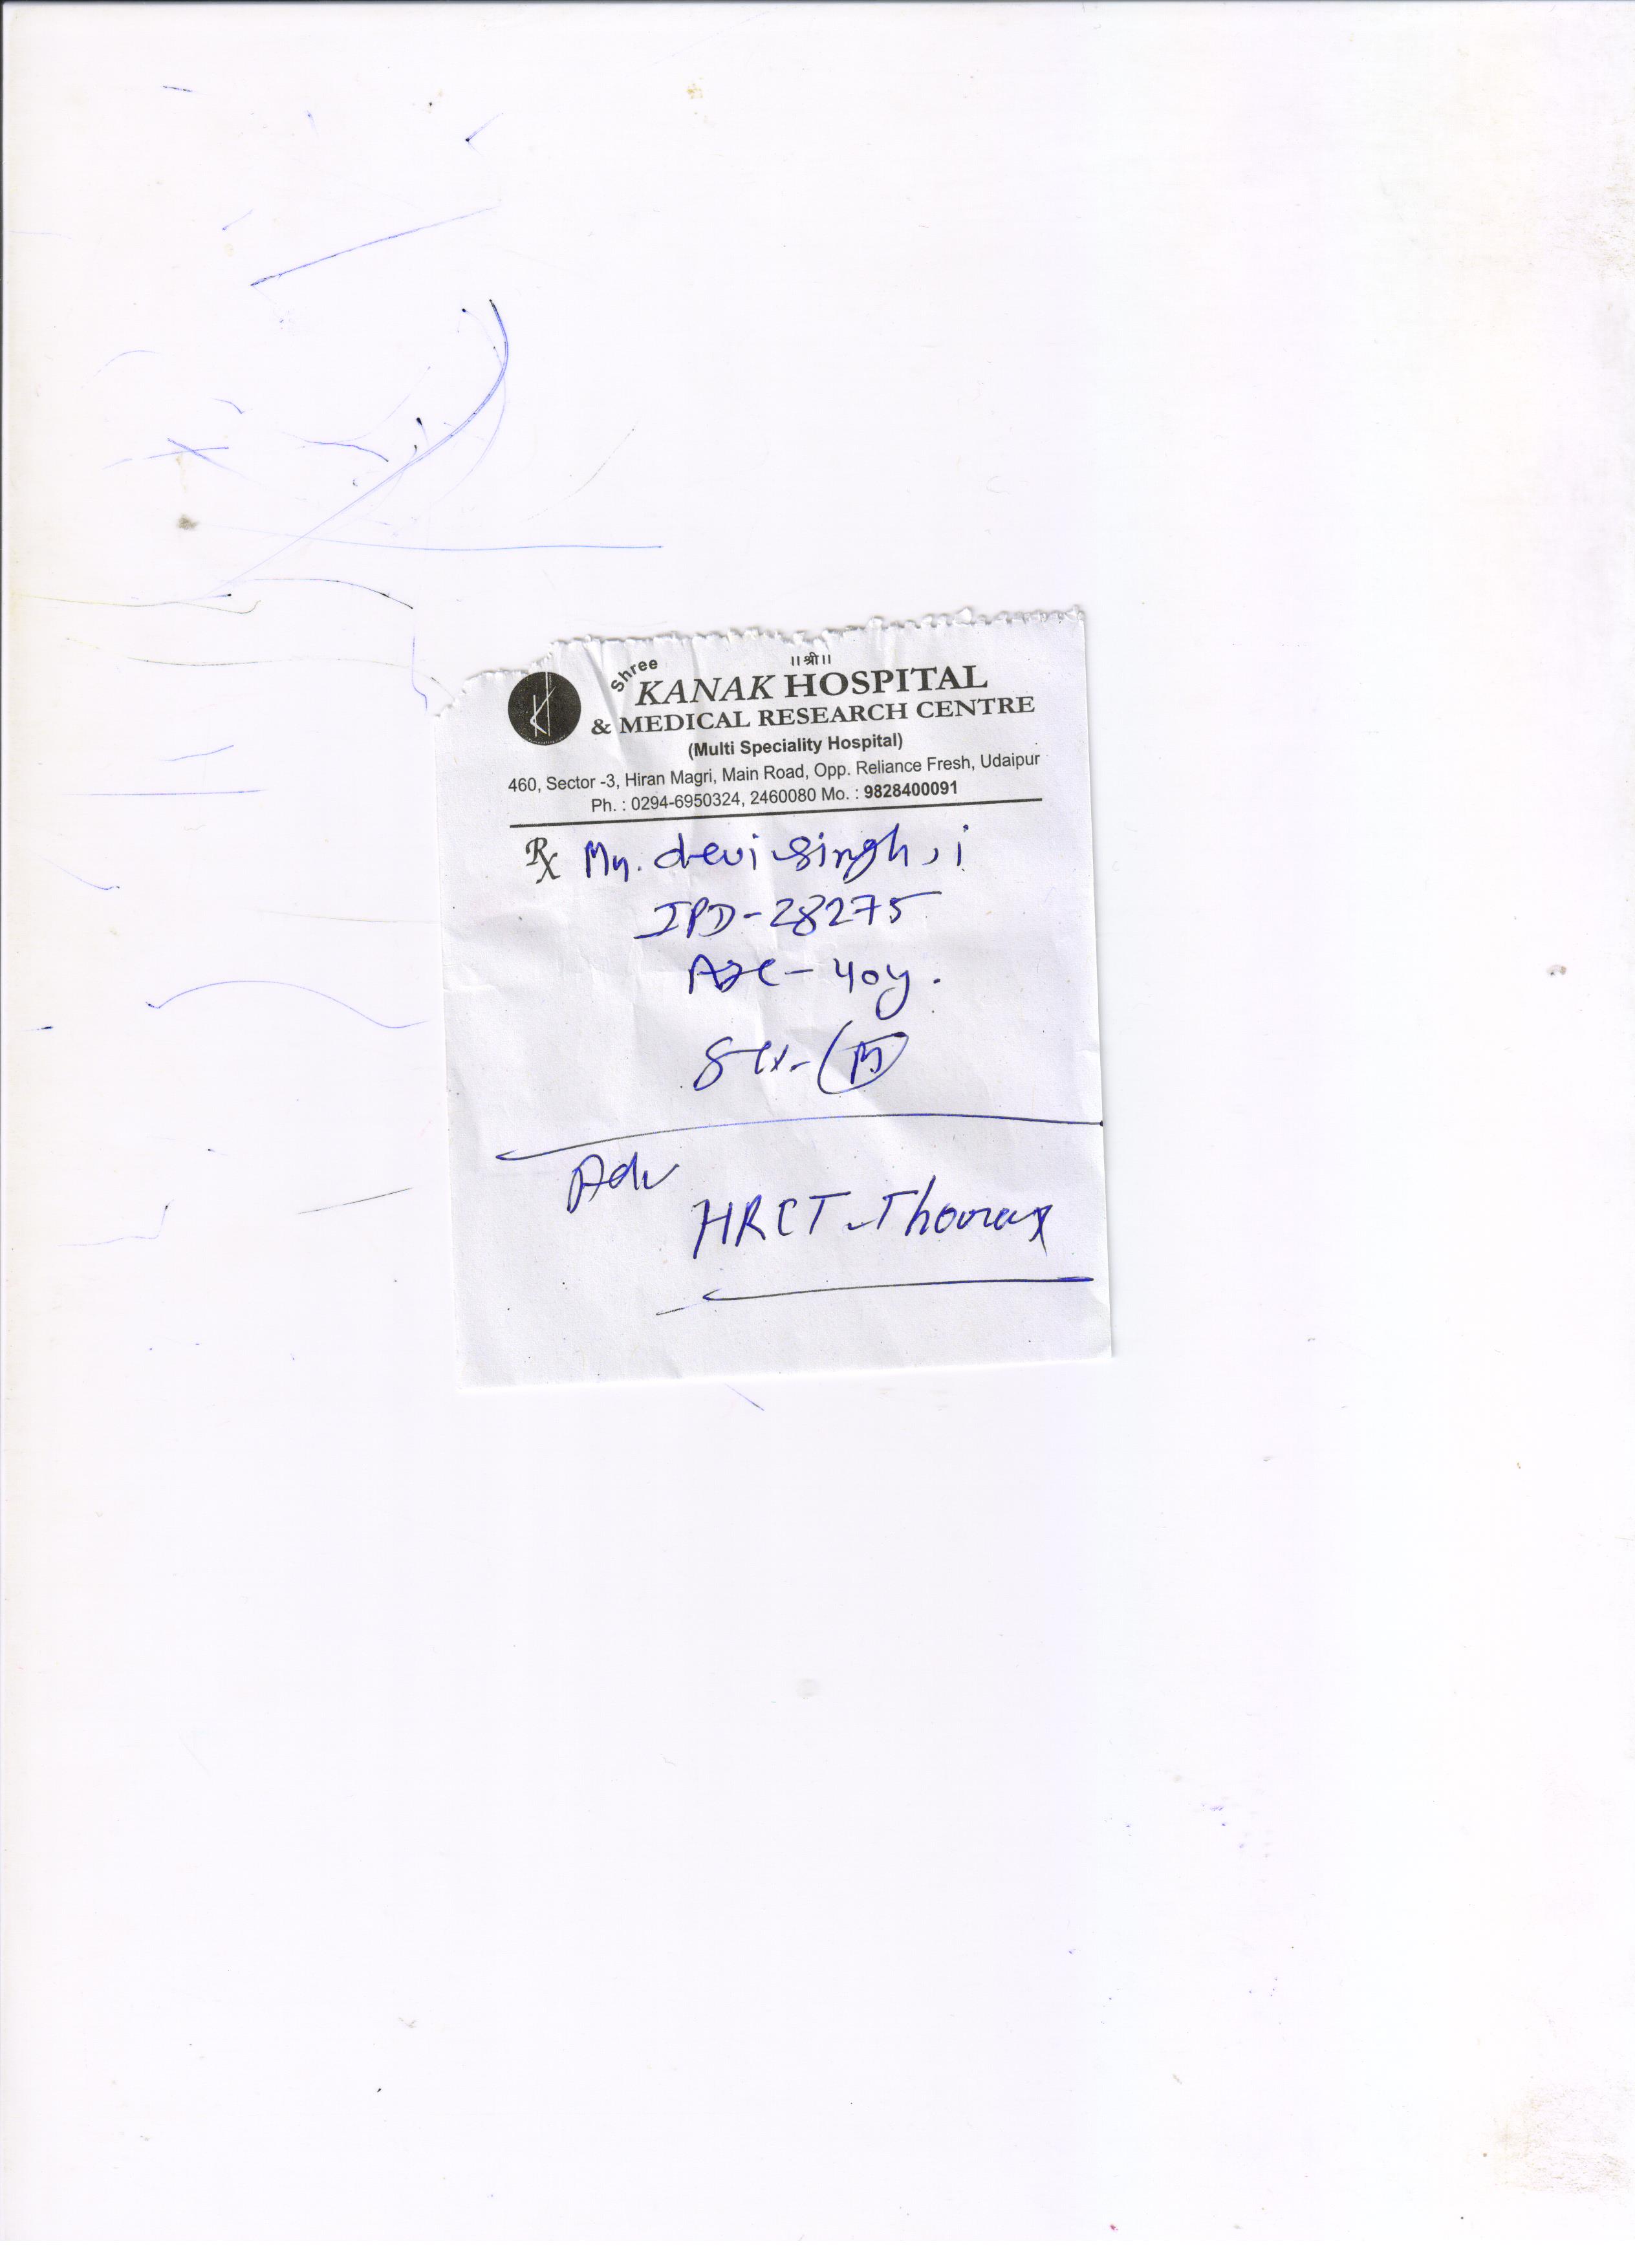 ॥ श्री ॥
Shree
KANAK HOSPITAL
& MEDICAL RESEARCH CENTRE
(Multi Speciality Hospital)
460, Sector -3, Hiran Magri, Main Road, Opp. Reliance Fresh, Udaipur
Ph. : 0294-6950324, 2460080 Mo. : 9828400091
Rx Mr. devi singh ji
IPD-28275
Age - 40y.
Sex - (M)
Adv
HRCT - Thorax